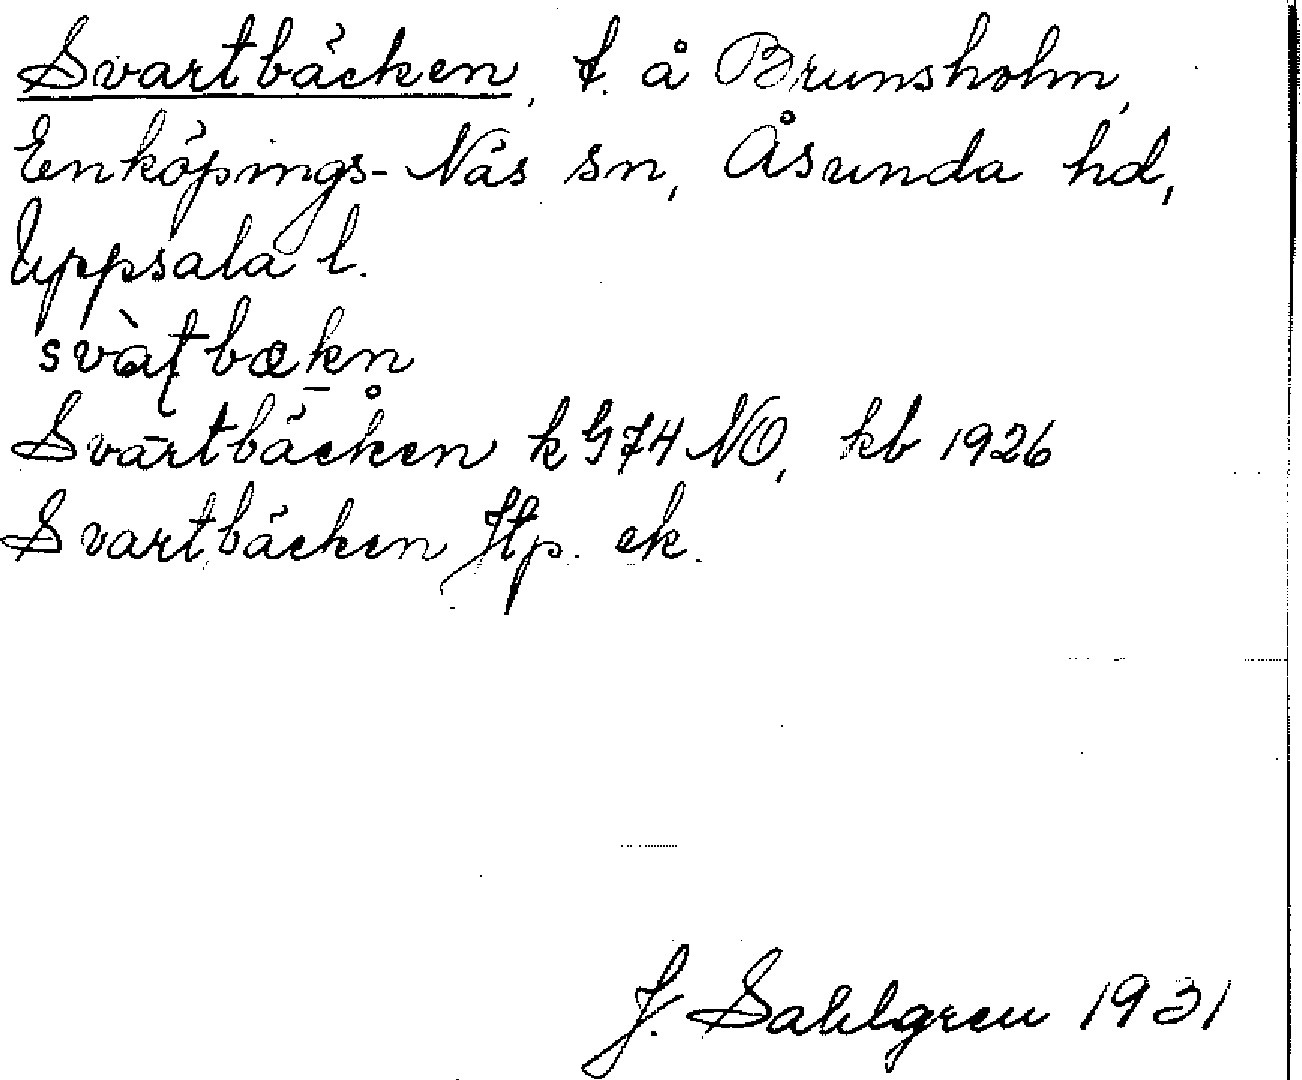 Svartbäcken, t. å Brunsholm,
Enköpings-Näs sn, Åsunda hd,
Uppsala l.
svàʈbækn̥
Svartbäcken k G74 NO, kb 1926
Svartbäcken Jtp. ek.
J. Sahlgren 1931